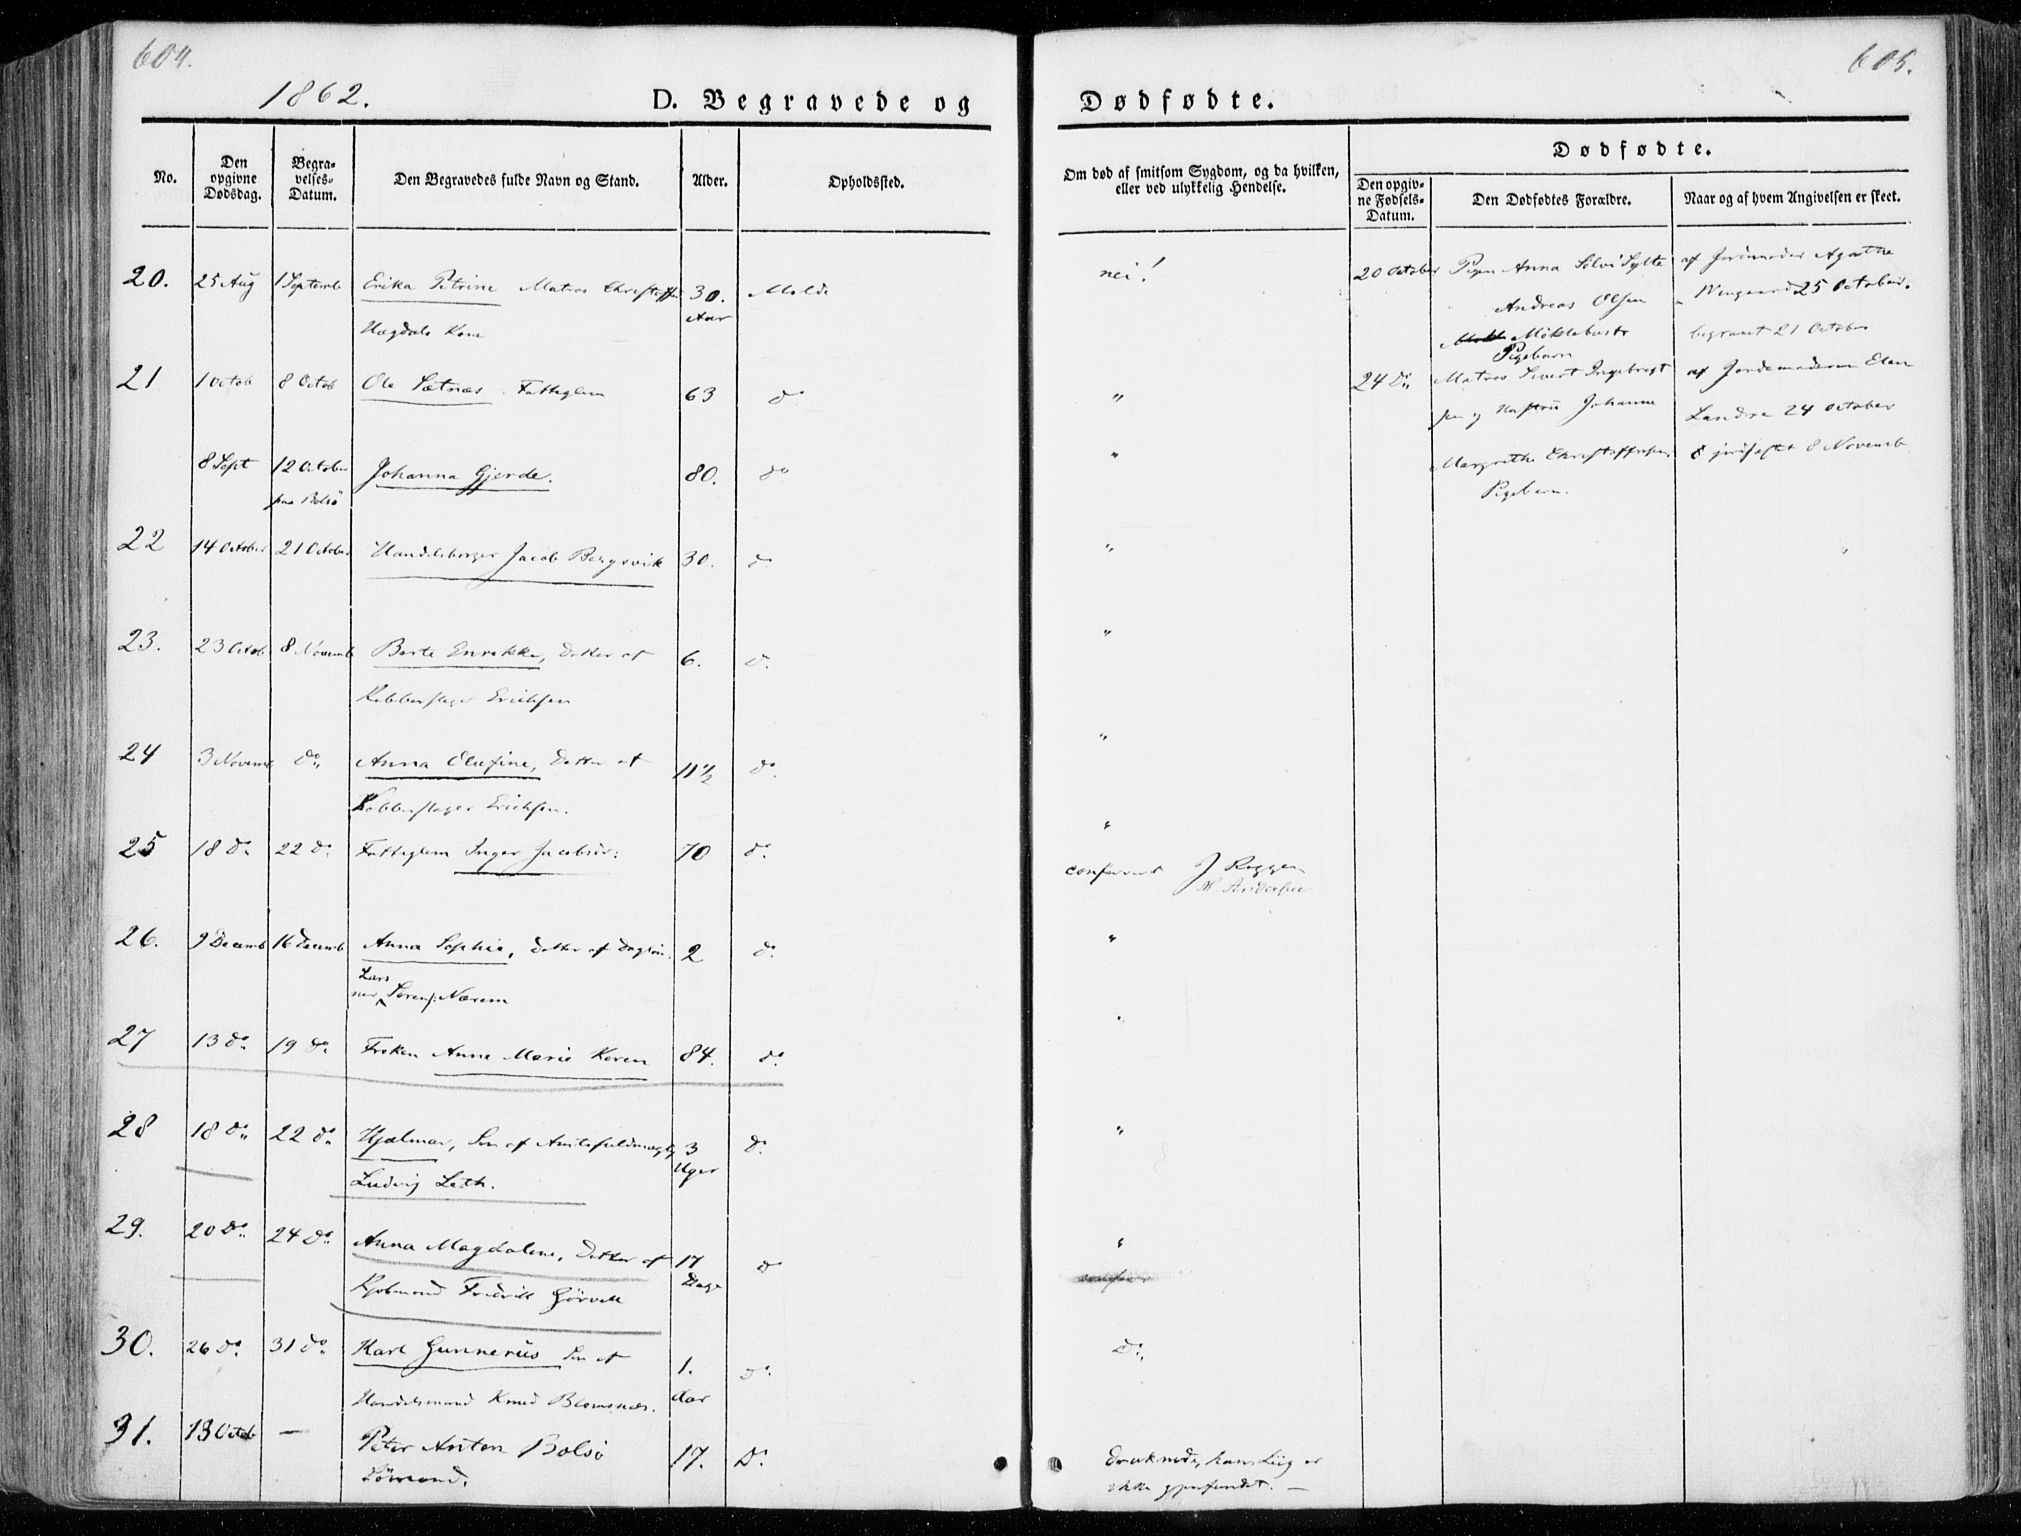 604.
1862.
D. Begravede og
No.
Den opgivne Dødsdag.
Begravelses-Datum.
Den Begravedes fulde Navn og Stand.
Alder.
Opholdssted.
20. 25 Aug 1 Septemb Erika Petrine Matros 30. Molde
Aar
Hagdals Kone
21 1 Octob 8 Octob Ole Sætnæs. Fattiglem 63 do
8 Sept 12 Octobr Johanna Gjerde. 80. do
paa Bolsö
22 14 October 21 October Handelsborger Jacob Bergsvik 30. do
23. 23 Octob 8 Novemb Berte Enrekke, Datter af 6. do
Kobberslager Erichsen
24 3 Novemb do Anna Olufine, Datter af 11 1/2 do
Kobberslager Erichsen.
25 18 do 22 do Fattiglem Inger 70 do
26. 9 Decemb 16 Decemb Anna Sophie, Datter af 2 do
Lars
Nærem
27 13 do 19 do Frøken Anne Marie Koren 84. do
28 18 do 22 do Hjalmar, Søn af Amtsfuldmægtig 3 do
Uger
Ludvig Leth.
29. 20 do 24 do Anna Magdalene, Datter af 17 do
Dage
Kjøbmand Fredrik Görvell
30. 26 do 31 do Karl Gunnerus Søn af 1. do
Handelsmand Knud Blomsnæs. Aar
31. 13 Octob — Peter Anton Bolsö 17. Do
Sömand.
605.
Dødfødte.
Om død af smitsom Sygdom, og da hvilken, eller ved ulykkelig Hendelse.
Dødfødte.
Den opgivne Fødsels-Datum.
Den Dødfødtes Forældre.
Naar og af hvem Angivelsen er skeet.
nei!
20 October Pigen Anna Sylte af Agathe
Andreas Olsen 25 October.
Möklebust begravet 21 October
Pigebarn
24 do Matros Sivert Ingebrigt af Jordemoderen Elen
sen og Hustru Johanne 24 October
Margrethe 8 Novemb
Pigebarn.
J Roggen
M. Andersen
Do
druknede, hans Liig er
ikke gjenfundet. —